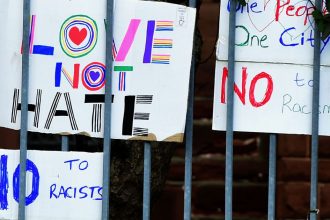 LOVE
NOT
HATE
NO TO
RACISTS
One People
One City
NO to
Racism